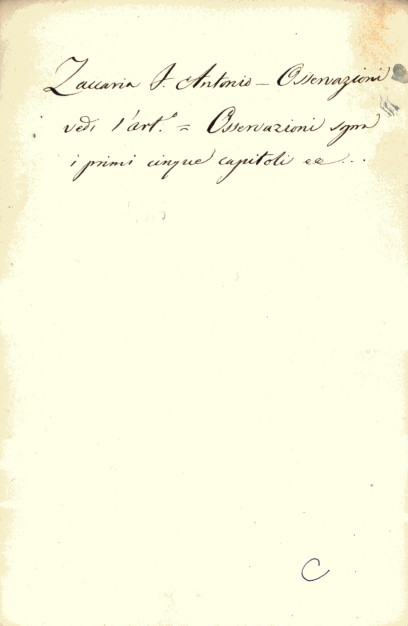 Zaccaria F. Antonio — Osservazioni
vedi l'art.º = Osservazioni sopra
i primi cinque capitoli ec ...
C